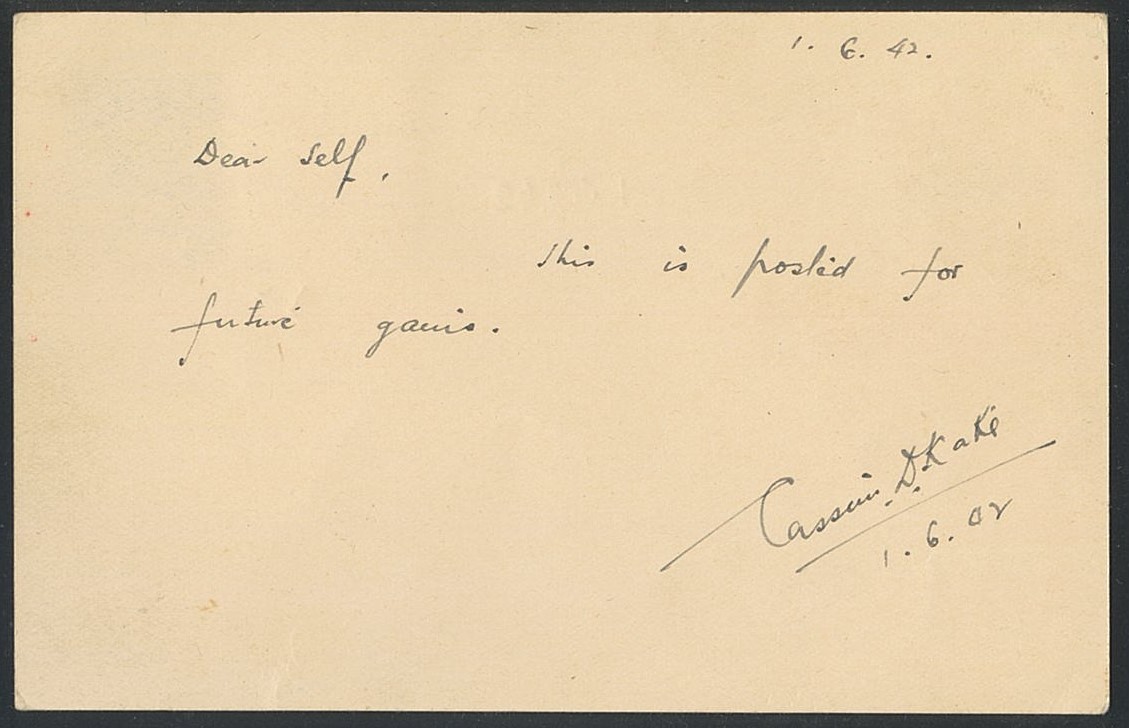 1. 6. 42.
Dear Self,
this is posted for
future gains.
Cassim D. Kaké
1. 6. 42